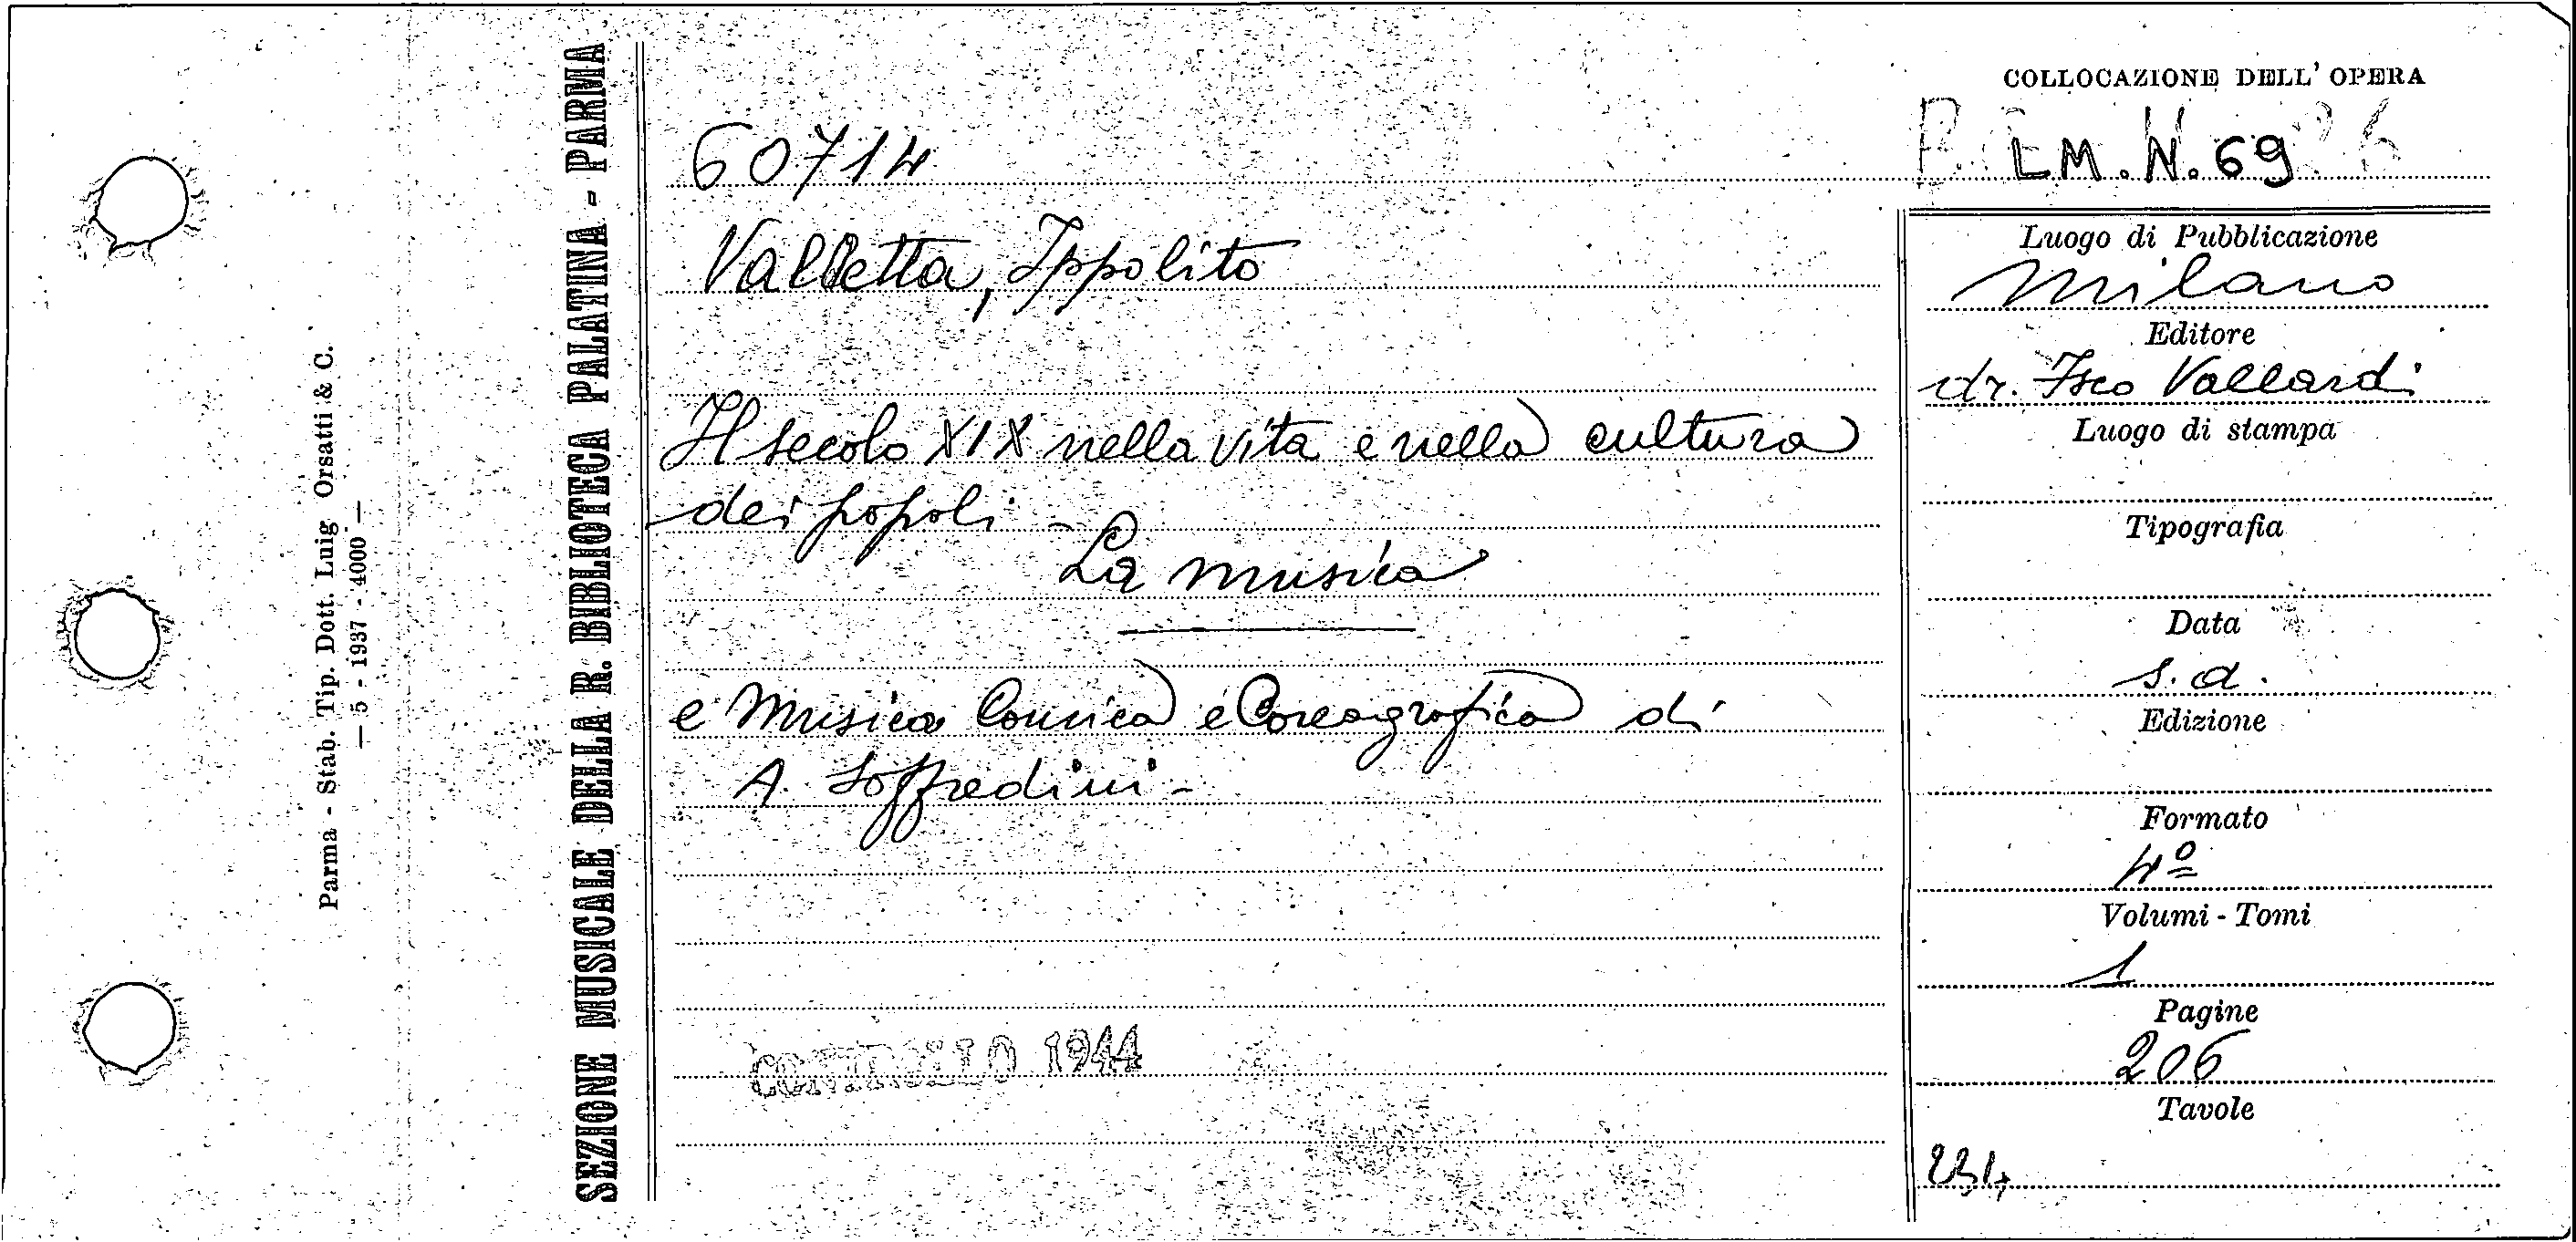 COLLOCAZIONE DELL' OPERA
LM. N. 69
60714
Valletta, Ippolito
Il secolo XIX nella vita e nella cultura
dei popoli -
La musica
e Musica Comica e Coreografica di
A. Soffredini -
CONTROLLO 1944
Luogo di Pubblicazione
Milano
Editore
dr. Fsco Vallardi
Luogo di stampa
Tipografia
Data
s. d.
Edizione
Formato
4º
Volumi - Tomi
1
Pagine
206
Tavole
234
SEZIONE MUSICALE DELLA R. BIBLIOTECA PALATINA - PARMA
Parma - Stab. Tip. Dott. Luig Orsatti & C.
— 5 - 1937 - 4000 —